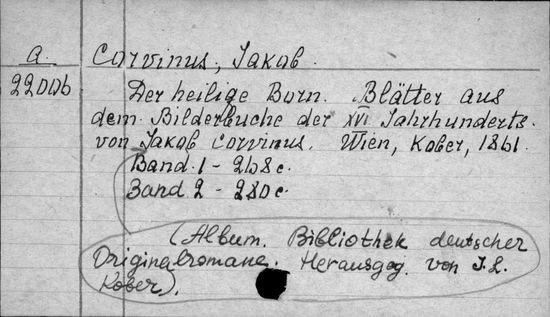 A. Corvinus, Jakob.
22006
Der heilige Born. Blätter aus
dem Bilderbuche der XVI Jahrhunderts.
von Jakob Corvinus. Wien, Kober, 1861.
Band 1 - 268 c.
Band 2 - 280 c.
(Album. Bibliothek deutscher
Originalromane. Herausgeg. von J. L.
Kober).